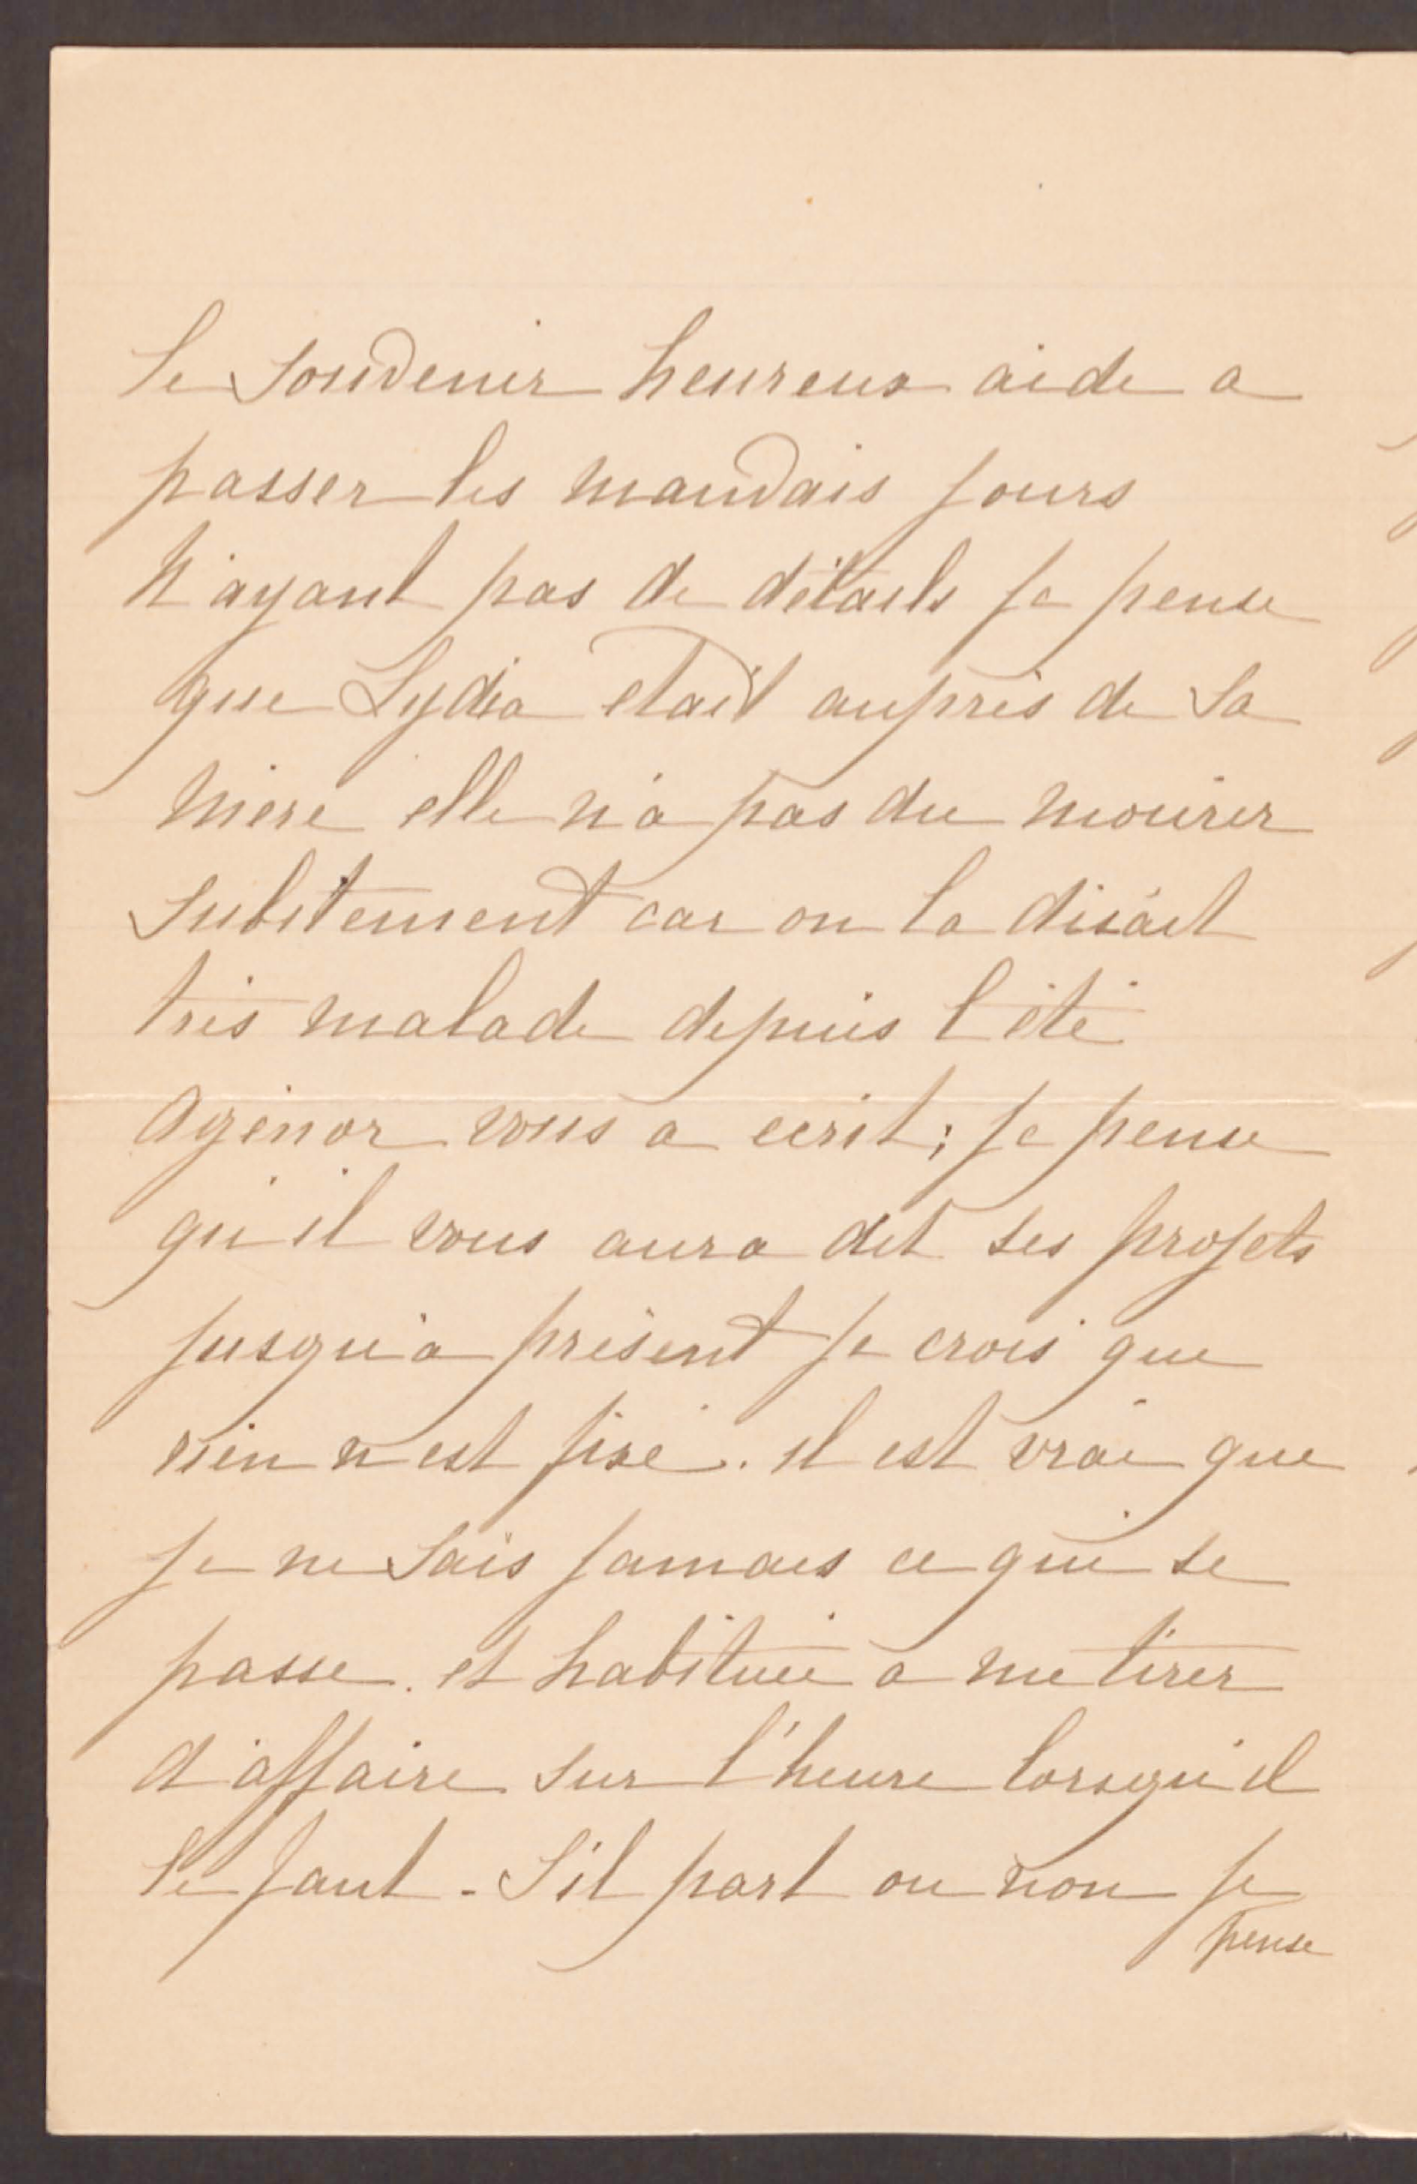 le souvenir heureux aide a
passer les mauvais jours
N'ayant pas de détails je pense
que Lydia etait auprès de sa
mère elle n'a pas du mourir
subitement car on la disait
très malade depuis l'été
Agénor vous a ecrit; je pense
qu'il vous aura dit ses projets
jusqu'a présent je crois que
rien n'est fixé. il est vrai que
je ne sais jamais ce qui se
passe. et habituée a me tirer
d'affaire sur l'heure lorsqu'il
le faut - S'il part ou non je
pense